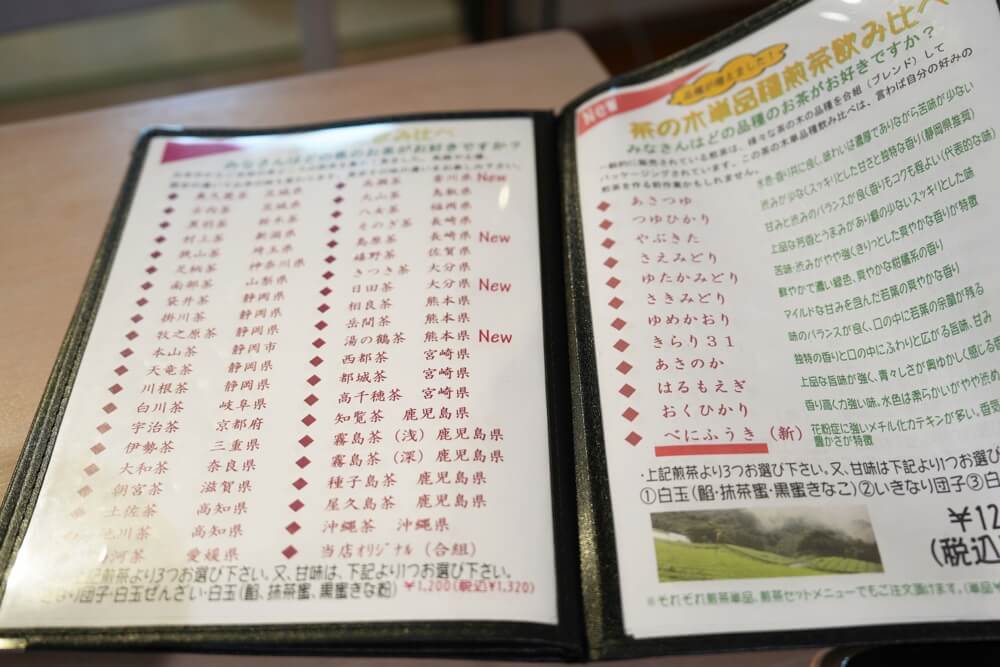 み比べ
みなさんはどの茶のお茶がお好きですか？
宮城県
茨城県
栃木県
村上茶 新潟県
狭山茶 埼玉県
足柄茶 神奈川県
南部茶 山梨県
袋井茶 静岡県
掛川茶 静岡県
牧之原茶 静岡県
本山茶 静岡市
天竜茶 静岡県
川根茶 静岡県
白川茶 岐阜県
宇治茶 京都府
伊勢茶 三重県
大和茶 奈良県
朝宮茶 滋賀県
土佐茶 高知県
池川茶 高知県
河茶 愛媛県
高瀬茶 香川県 New
大山茶 鳥取県
八女茶 福岡県
そのぎ茶 長崎県
島原茶 長崎県 New
嬉野茶 佐賀県
きつき茶 大分県
日田茶 大分県 New
相良茶 熊本県
岳間茶 熊本県
湯の鶴茶 熊本県 New
西都茶 宮崎県
都城茶 宮崎県
高千穂茶 宮崎県
知覧茶 鹿児島県
霧島茶（浅）鹿児島県
霧島茶（深）鹿児島県
種子島茶 鹿児島県
屋久島茶 鹿児島県
沖縄茶 沖縄県
当店オリジナル（合組）
上記煎茶より3つお選び下さい。又、甘味は、下記より1つお選び下さい。
なり団子・白玉ぜんざい・白玉（餡、抹茶蜜、黒蜜きな粉） ¥1,200（税込¥1,320）
New
品種が増えました！
茶の木単品種煎茶飲み比べ
みなさんはどの品種のお茶がお好きですか？
一般的に販売されている煎茶は、様々な茶の木の品種を合組（ブレンド）して
パッケージングされています。この茶の木単品種飲み比べは、言わば自分の好みの
煎茶を作る前作業かもしれません。
あさつゆ 水色・香り共に良く、味わいは濃厚でありながら苦味が少ない
つゆひかり 渋みが少なくスッキリとした甘さと独特な香り（静岡県推奨）
やぶきた 甘みと渋みのバランスが良く香りもコクも程よい（代表的な味）
さえみどり 上品な芳香とうまみがあり癖の少ないスッキリとした味
ゆたかみどり 苦味・渋みがやや強くきりっとした爽やかな香りが特徴
さきみどり 鮮やかで濃い緑色、爽やかな柑橘系の香り
ゆめかおり マイルドな甘みを含んだ若葉の爽やかな香り
きらり31 味のバランスが良く、口の中に若葉の余韻が残る
あさのか 独特の香りと口の中にふわりと広がる旨味、甘み
はるもえぎ 上品な旨味が強く、青々しさが奥ゆかしく感じる香
おくひかり 香り高く力強い味。水色は柔らかいがやや渋め
べにふうき（新） 花粉症に強いメチル化カテキンが多い。香里
豊かさが特徴
・上記煎茶より3つお選び下さい。又、甘味は下記より1つお選び
①白玉（餡・抹茶蜜・黒蜜きなこ）②いきなり団子③白
¥12
（税込
※それぞれ煎茶単品、煎茶セットメニューでもご注文頂けます。（単品